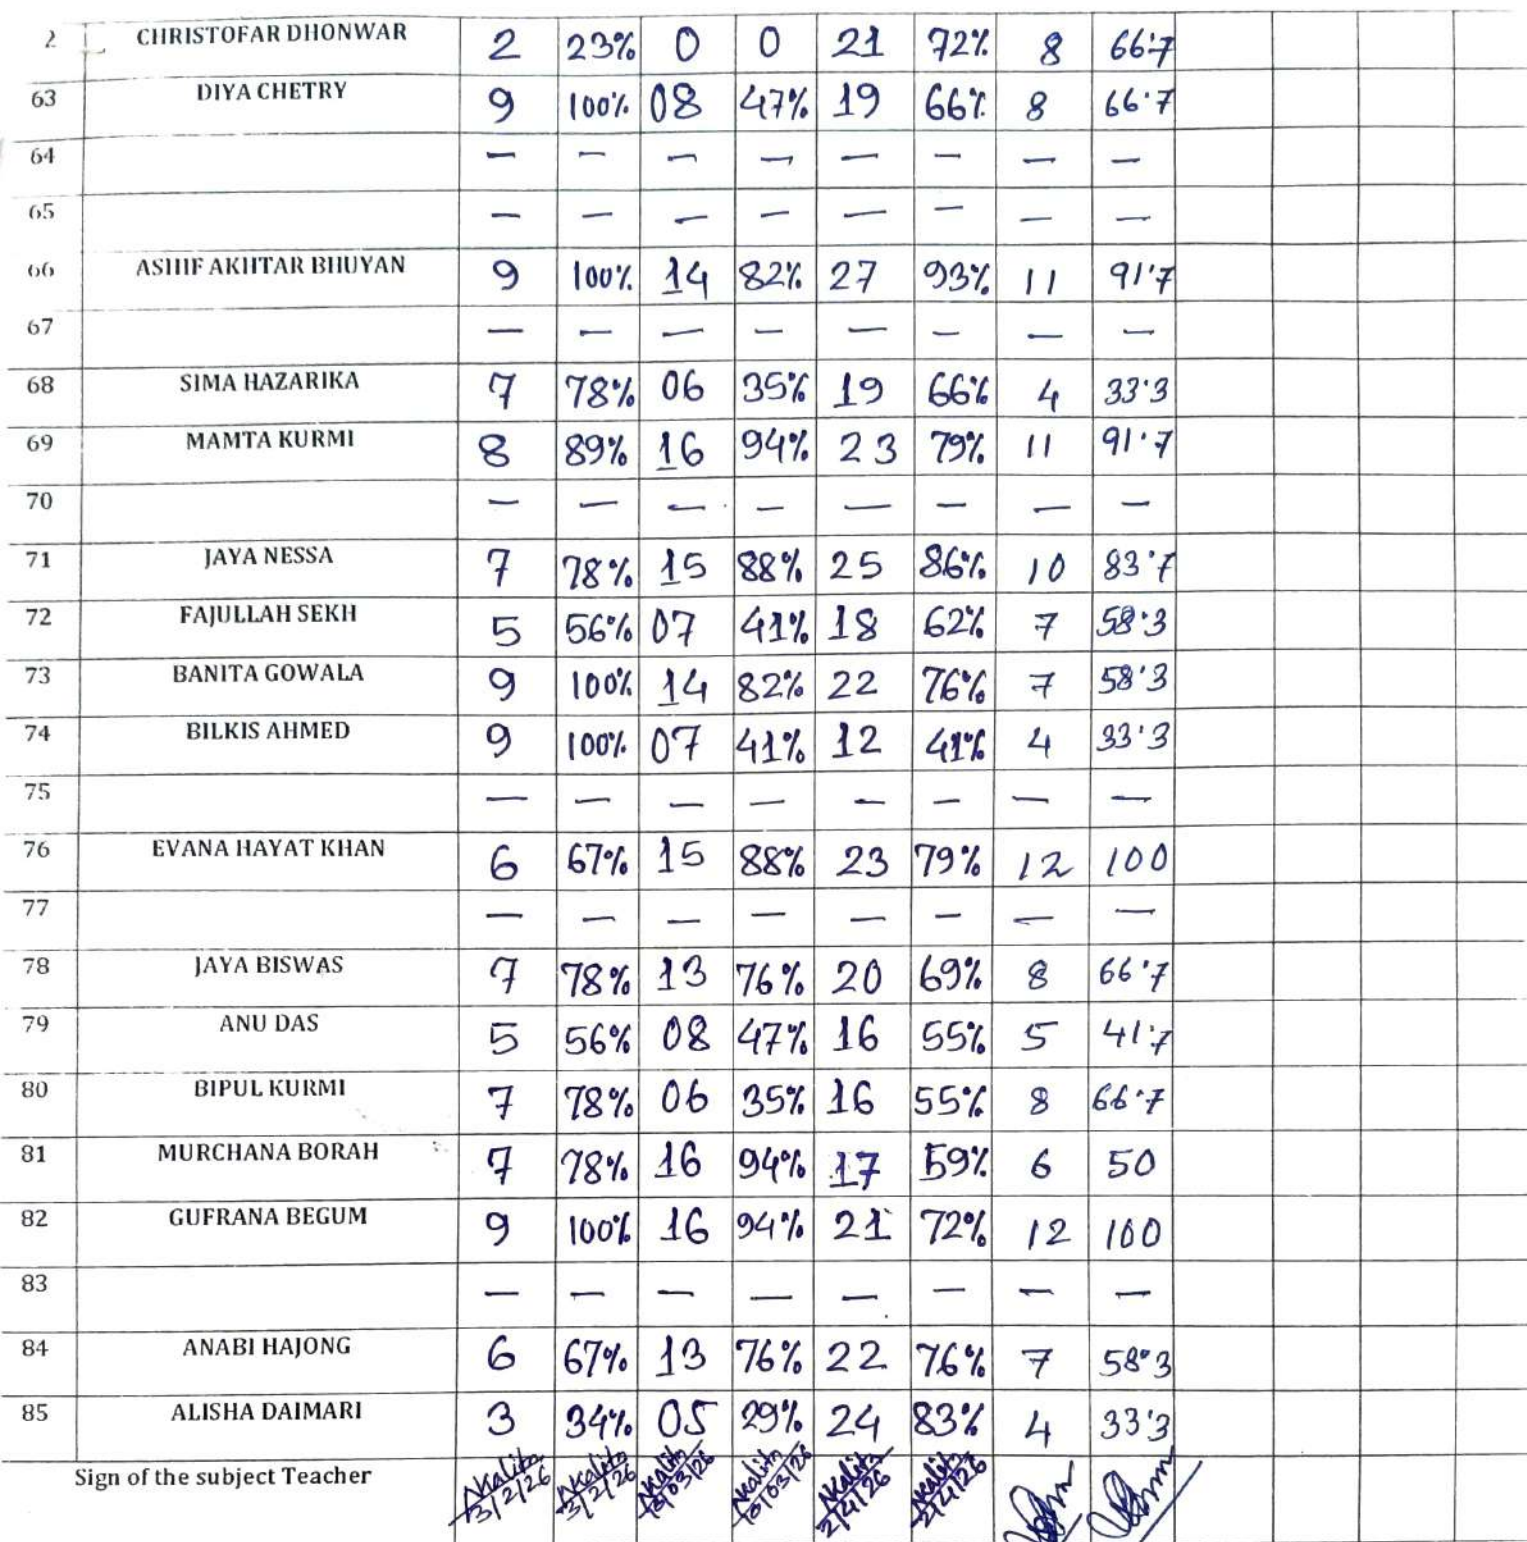 2 CHRISTOFAR DHONWAR 2 23% 0 0 21 72% 8 66.7
63 DIYA CHETRY 9 100% 08 47% 19 66% 8 66.7
64 — — — — — — — —
65 — — — — — — — —
66 ASHIF AKHTAR BHUYAN 9 100% 14 82% 27 93% 11 91.7
67 — — — — — — — —
68 SIMA HAZARIKA 7 78% 06 35% 19 66% 4 33.3
69 MAMTA KURMI 8 89% 16 94% 23 79% 11 91.7
70 — — — — — — — —
71 JAYA NESSA 7 78% 15 88% 25 86% 10 83.7
72 FAJULLAH SEKH 5 56% 07 41% 18 62% 7 58.3
73 BANITA GOWALA 9 100% 14 82% 22 76% 7 58.3
74 BILKIS AHMED 9 100% 07 41% 12 41% 4 33.3
75 — — — — — — — —
76 EVANA HAYAT KHAN 6 67% 15 88% 23 79% 12 100
77 — — — — — — — —
78 JAYA BISWAS 7 78% 13 76% 20 69% 8 66.7
79 ANU DAS 5 56% 08 47% 16 55% 5 41.7
80 BIPUL KURMI 7 78% 06 35% 16 55% 8 66.7
81 MURCHANA BORAH 7 78% 16 94% 17 59% 6 50
82 GUFRANA BEGUM 9 100% 16 94% 21 72% 12 100
83 — — — — — — — —
84 ANABI HAJONG 6 67% 13 76% 22 76% 7 58.3
85 ALISHA DAIMARI 3 34% 05 29% 24 83% 4 33.3
Sign of the subject Teacher NKalita NKalita NKalita NKalita NKalita NKalita
3/2/26 3/2/26 18/03/26 18/03/26 2/4/26 2/4/26